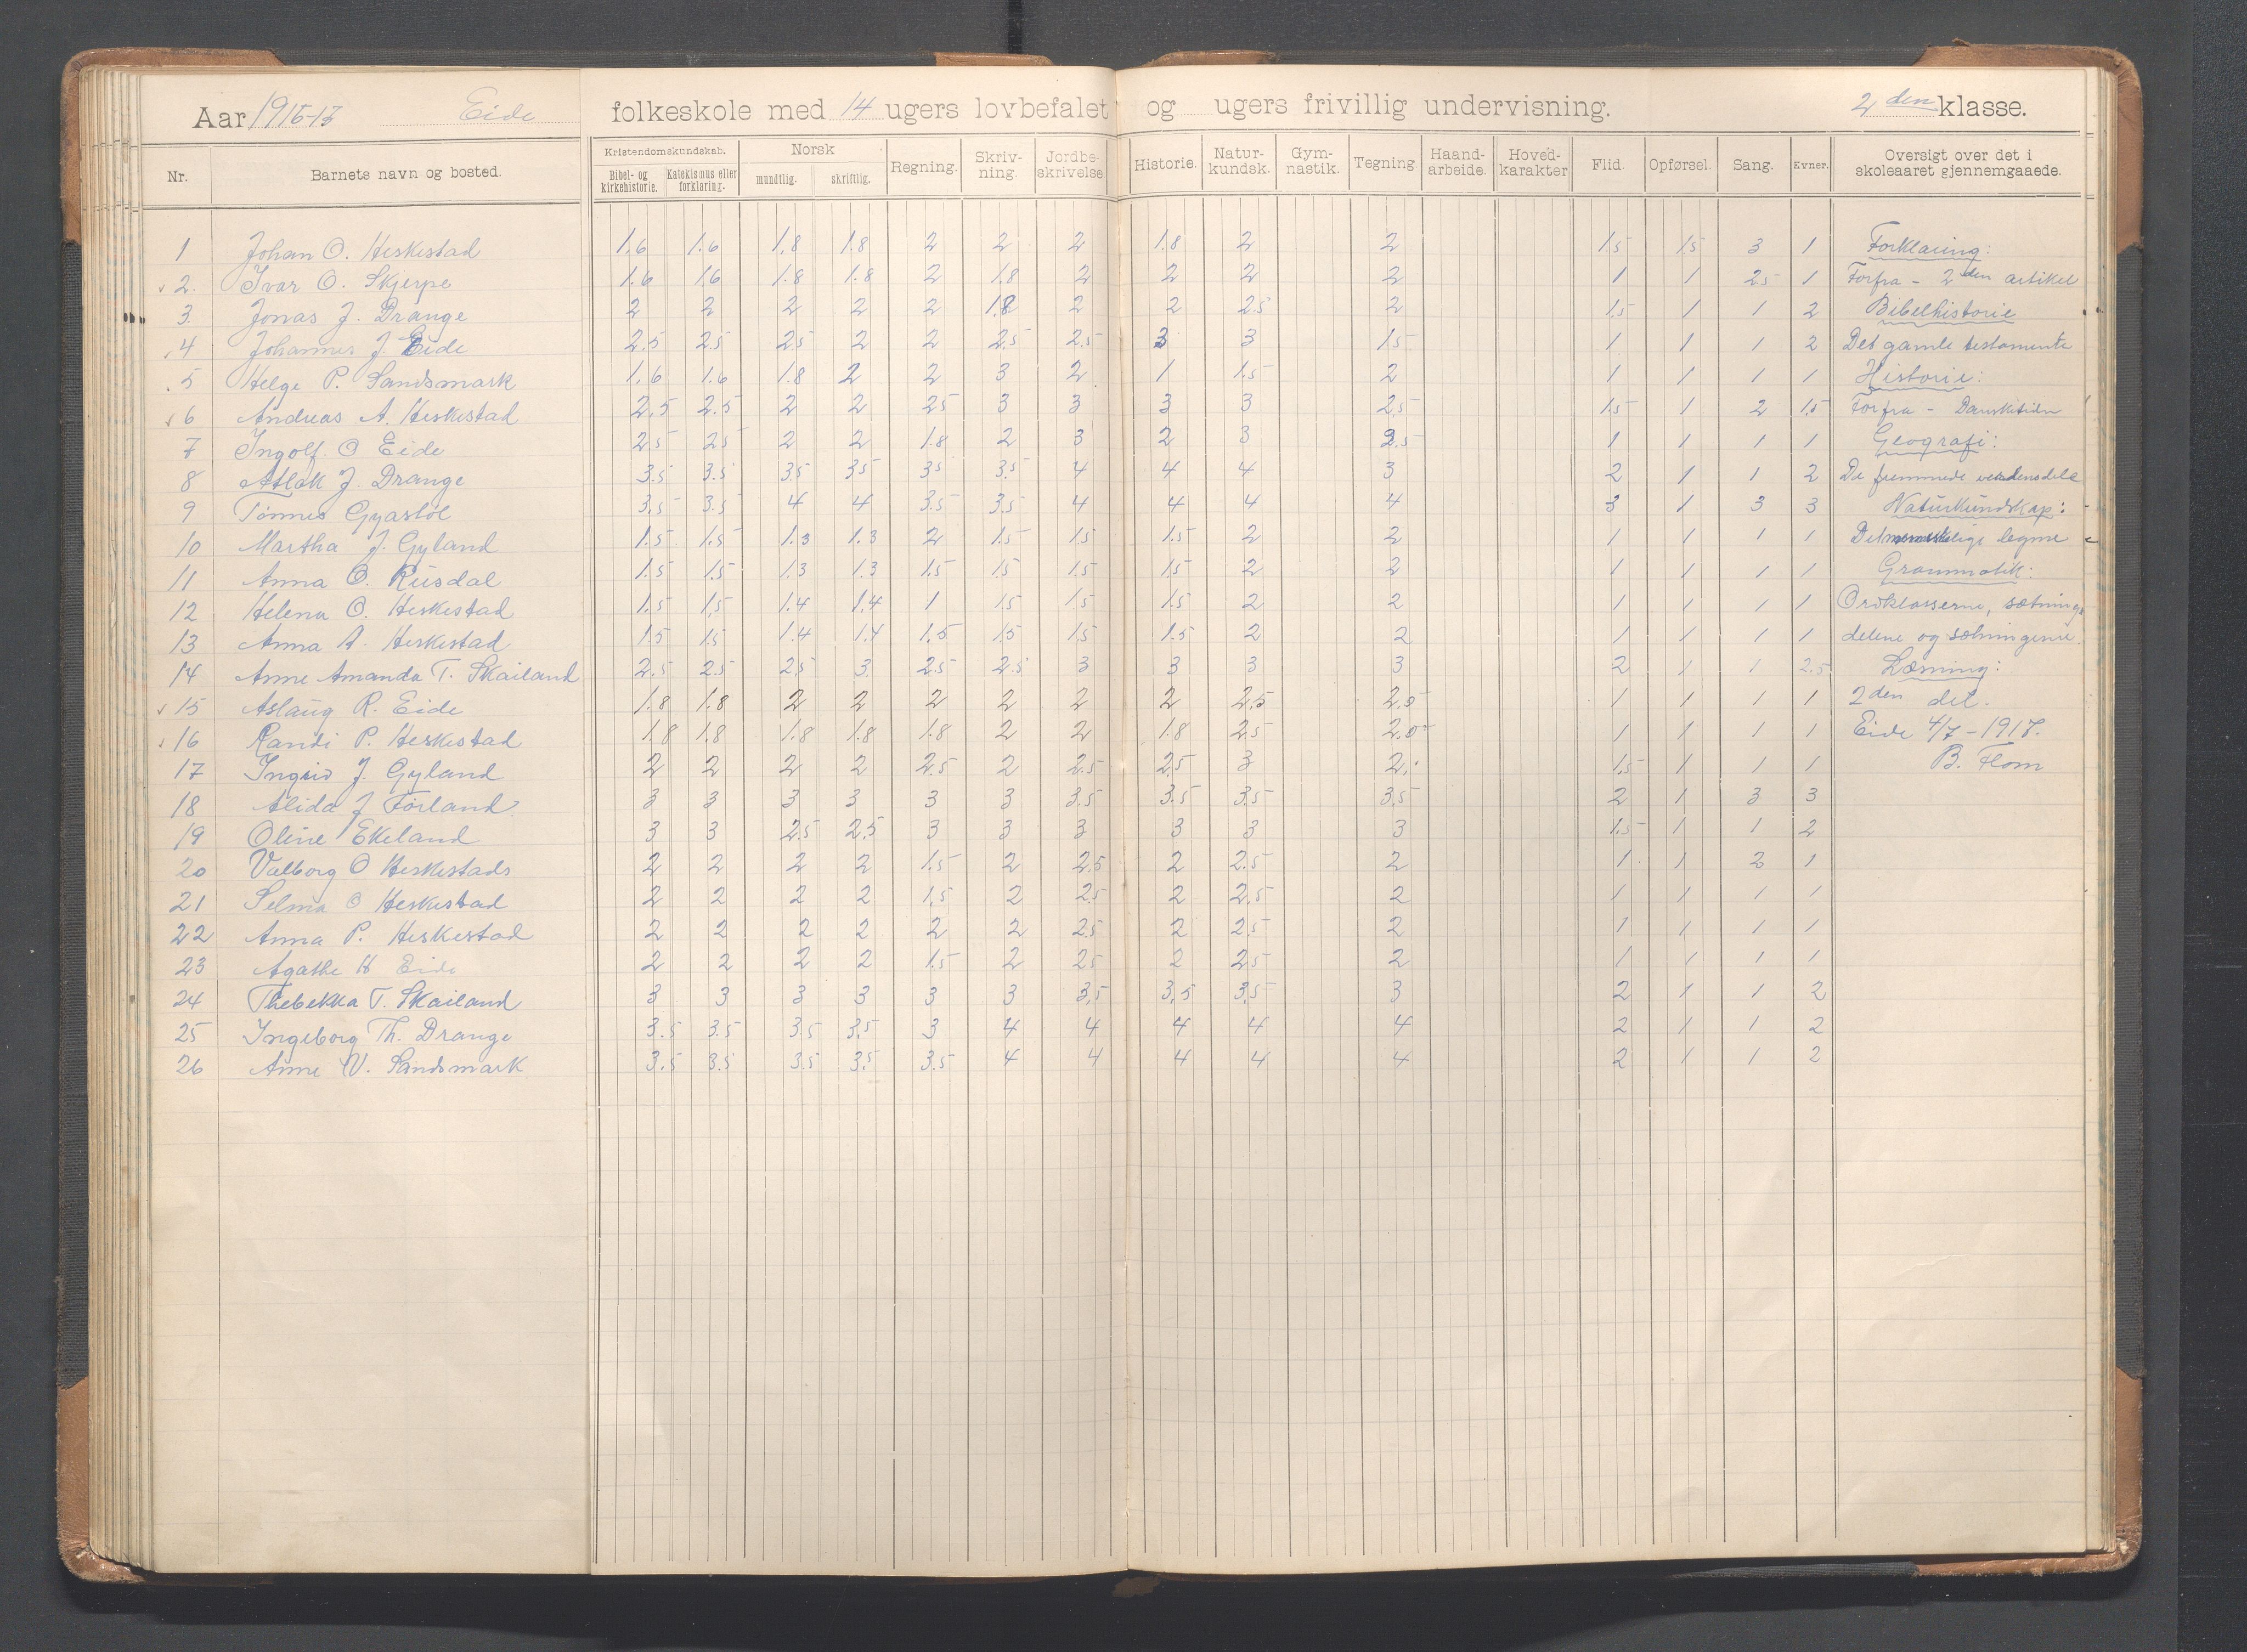 Aar 1916-17 Eide folkeskole med 14 ugers lovbefalet og ugers frivillig undervisning. 2 den klasse.
Nr. Barnets navn og bosted. Kristendomskundskab. Bibel- og kirkehistorie. Katekismus eller forklaring. Norsk mundtlig. skriftlig. Regning. Skriv-ning. Jordbe-skrivelse Historie. Natur-kundsk. Gym-nastik. Tegning. Haand-arbeide. Hoved-karakter Flid. Opførsel. Sang. Evner. Oversigt over det i skoleaaret gjennemgaaede.
1 Johan O. Heskestad 1.6 1.6 1.8 1.8 2 2 2 1.8 2 2 1.5 1.5 3 1 Forklaring:
2. Ivar O. Skjerpe 1.6 1.6 1.8 1.8 2 1.8 2 2 2 2 1 1 2.5 1 Forfra - 2 den artikel
3. Jonas J. Drange 2 2 2 2 2 1.8 2 2 2.5 2 1.5 1 1 2 Bibelhistorie
4 Johannes J. Eide 2.5 2.5 2.5 2 2 2.5 2.5 3 3 1.5 1 1 1 2 Det gamle testamente
5 Helge P. Sandsmark 1.6 1.6 1.8 2 2 3 2 1 1.5 2 1 1 1 1 Historie:
6 Andreas A. Heskestad 2.5 2.5 2 2 2.5 3 3 3 3 2.5 1.5 1 2 1.5 Forfra - Dansketiden
7 Ingolf. O Eide 2.5 2.5 2 2 1.8 2 3 2 3 2.5 1 1 1 1 Geografi:
8 Atlak J. Drange 3.5 3.5 3.5 3.5 3.5 3.5 4 4 4 3 2 1 1 2 De fremmede verdensdele
9 Tønnes Gyastøl 3.5 3.5 4 4 3.5 3.5 4 4 4 4 3 1 3 3 Naturkundskap:
10 Martha J. Gyland 1.5 1.5 1.3 1.3 2 1.5 1.5 1.5 2 2 1 1 1 1 Det menneskelige legme
11 Anna O. Rusdal 1.5 1.5 1.3 1.3 1.5 1.5 1.5 1.5 2 2 1 1 1 1 Grammatik:
12 Helena O. Heskestad 1.5 1.5 1.4 1.4 1 1.5 1.5 1.5 2 2 1 1 1 1 Ordklasserne, sætnings
13 Anna A. Heskestad 1.5 1.5 1.4 1.4 1.5 1.5 1.5 1.5 2 2 1 1 1 1 delene og sætningerne.
14 Anne Amanda T. Skailand 2.5 2.5 2.5 3 2.5 2.5 3 3 3 3 2 1 1 2.5 Læsning:
15 Aslaug R. Eide 1.8 1.8 2 2 2 2 2 2 2.5 2.5 1 1 1 1 2 den del.
16 Randi P. Heskestad 1.8 1.8 1.8 1.8 1.8 2 2 1.8 2.5 2.0 1 1 1 1 Eide 4/7 - 1917.
17 Ingrid J. Gyland 2 2 2 2 2.5 2 2.5 2.5 3 2. 1.5 1 1 1 B. Flom
18 Alida J Førland 3 3 3 3 3 3 3.5 3.5 3.5 3.5 2 1 3 3
19 Oline Ekeland 3 3 2.5 2.5 3 3 3 3 3 3 1.5 1 1 2
20 Valborg O Heskestad 2 2 2 2 1.5 2 2.5 2 2.5 2 1 1 2 1
21 Selma O Heskestad 2 2 2 2 1.5 2 2.5 2 2.5 2 1 1 1 1
22 Anna P. Heskestad 2 2 2 2 2 2 2.5 2 2.5 2 1 1 1 1
23 Agathe H Eide 2 2 2 2 1.5 2 2.5 2 2.5 2 1 1 1 1
24 Thebekka T. Skailand 3 3 3 3 3 3 3.5 3.5 3.5 3 2 1 1 2
25 Ingeborg Th. Drange 3.5 3.5 3.5 3.5 3 4 4 4 4 4 2 1 1 2
26 Anne V. Sandsmark 3.5 3.5 3.5 3.5 3.5 4 4 4 4 4 2 1 1 2